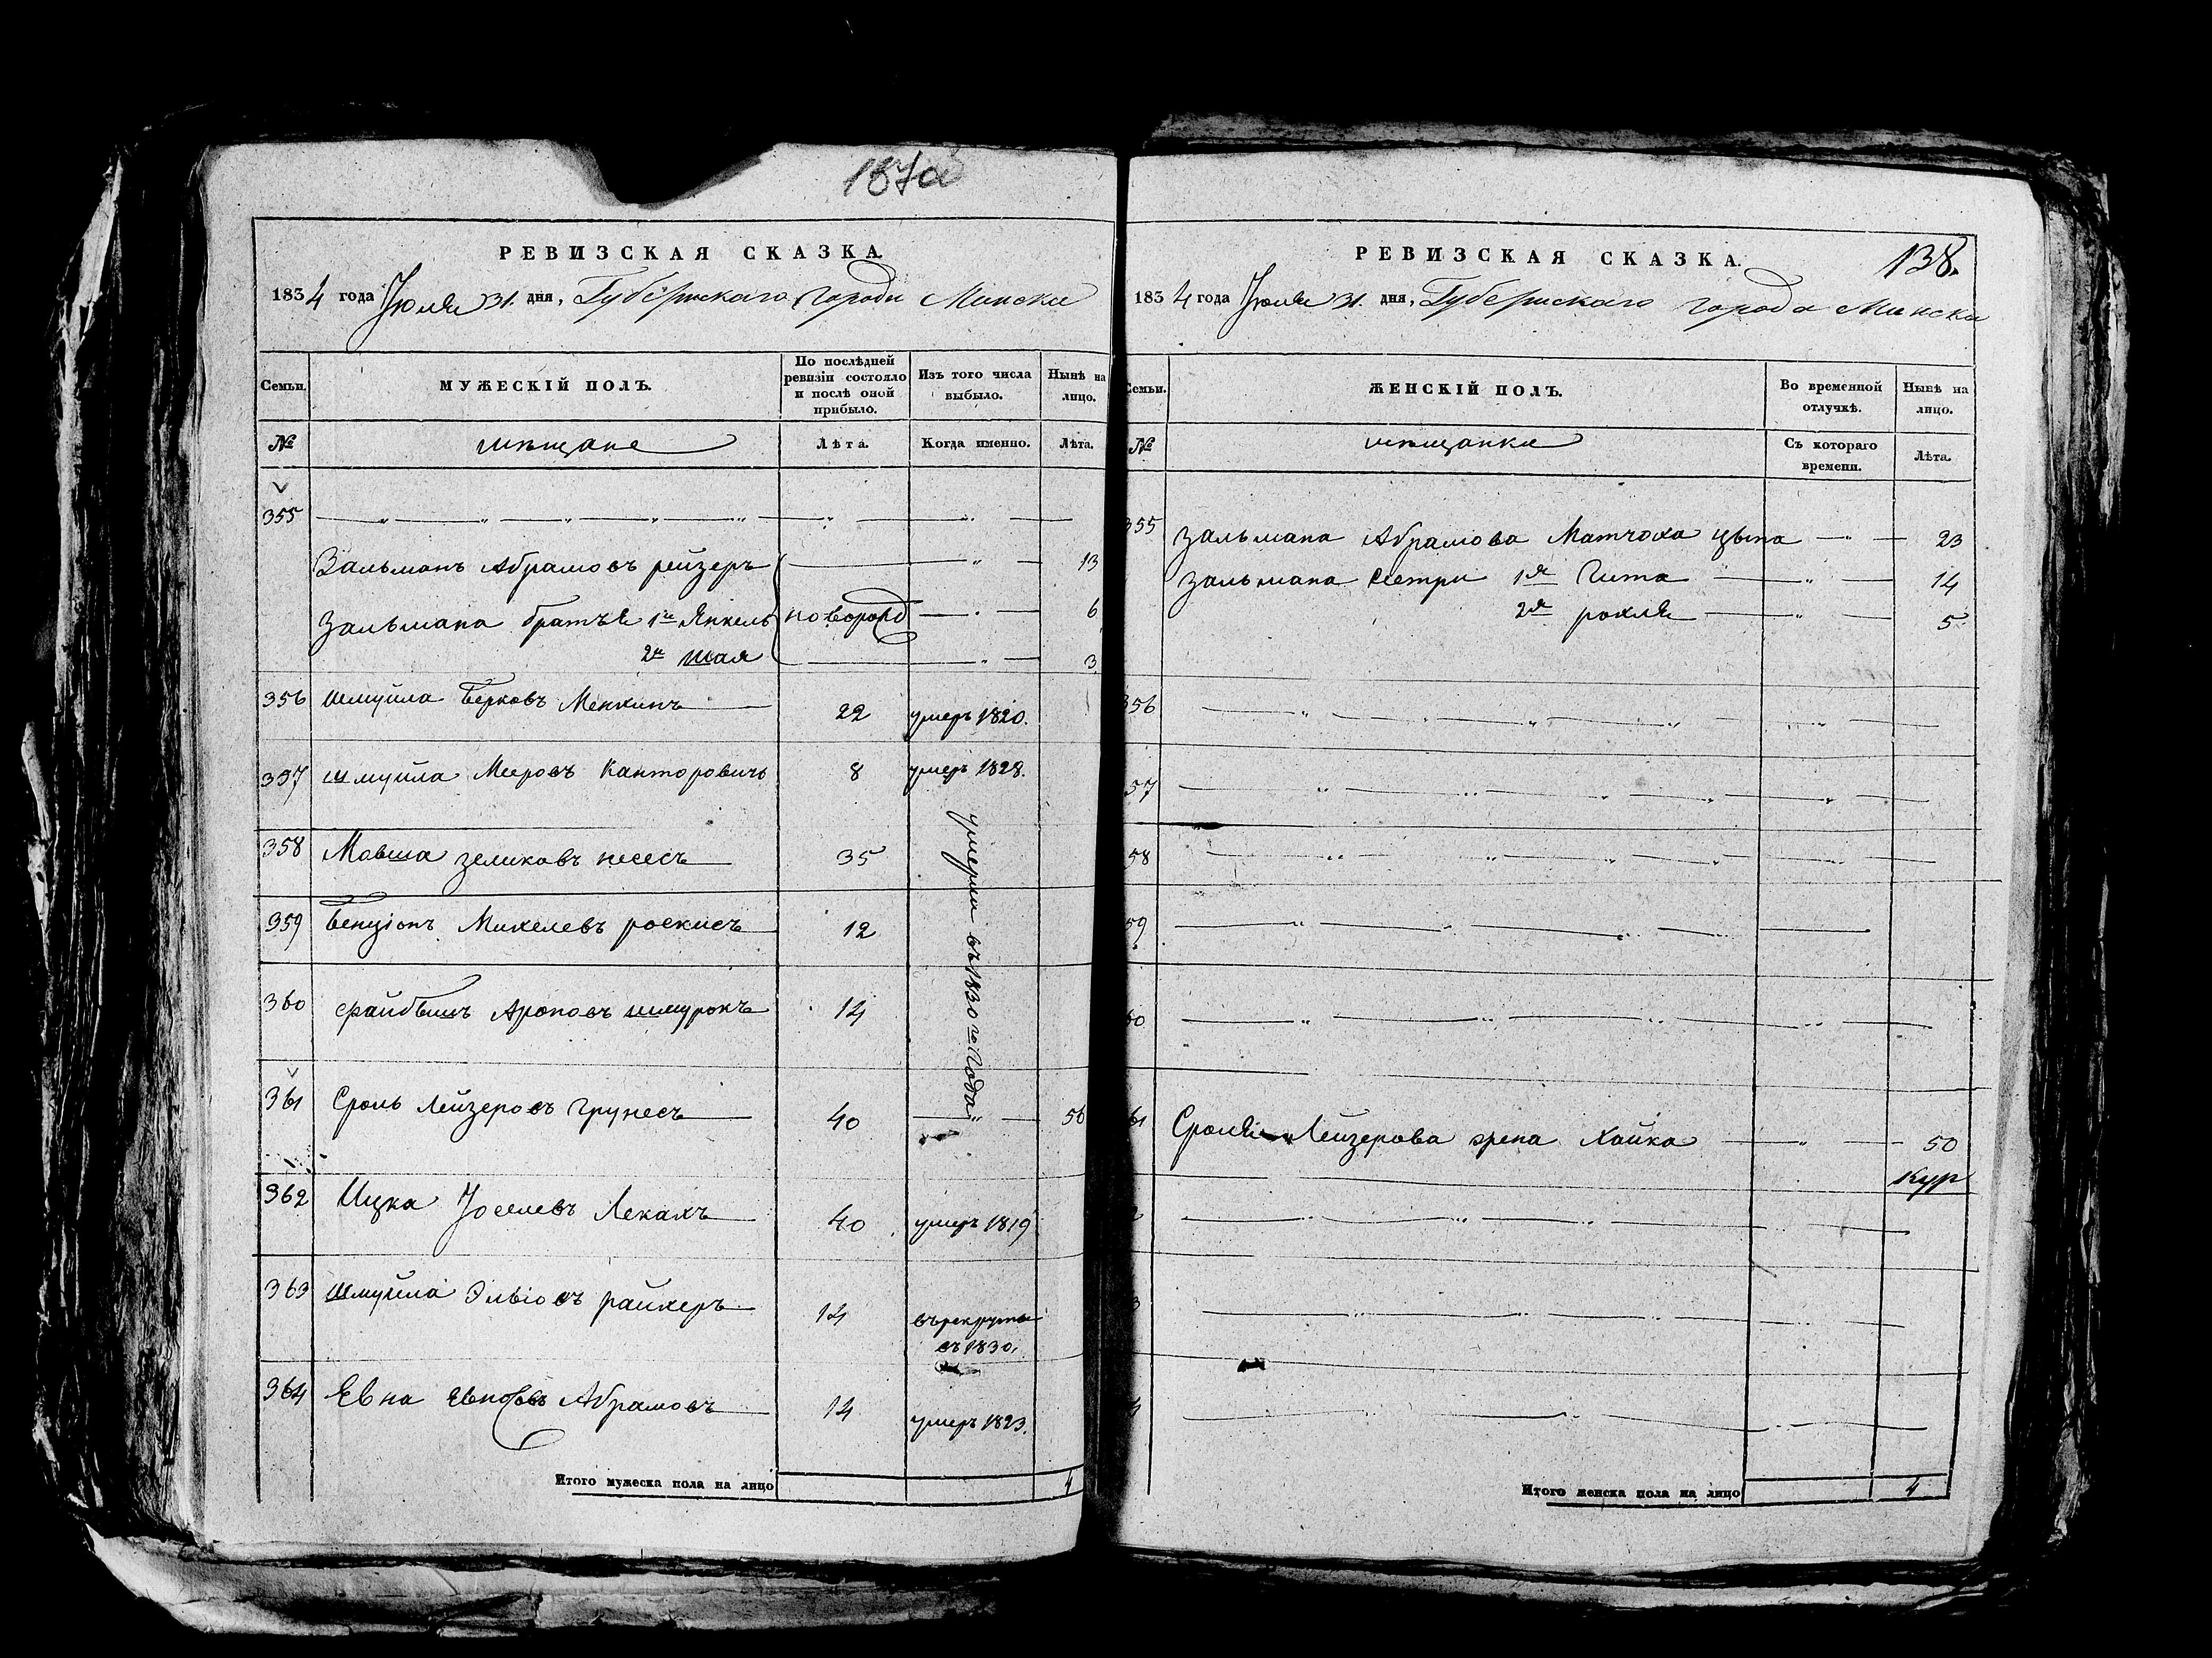 РЕВИЗСКАЯ СКАЗКА.
1834 года Іюля 31. дня, Губернскаго города Минска
Семьи.
МУЖЕСКІЙ ПОЛЪ.
По послѣдней ревизіи состояло и послѣ оной прибыло.
Изъ того числа выбыло.
Нынѣ на лицо.
№ мѣщане Лѣта. Когда именно. Лѣта.
355
Зальманъ Абрамовъ рейзеръ 13
Зальмана братья 1й Янкель новорожд 6
2й Шая 3
356 Шмуйла Берковъ Менкинъ 22 умеръ 1820.
357 Шмуйла Мееровъ Канторовичъ 8 умеръ 1828.
358 Мовша Зеликовъ песесъ 35
умерли въ 1830го года
359 Бенціонъ Михелевъ роскисъ 12
360 Файбишъ Ароновъ шмуронъ 14
361 Сроль Лейзеровъ Грунесъ 40 56
362 Ицка Іоселевъ Лекахъ 40 умеръ 1819
363 Шмуйла Эльіовъ райхеръ 14 въ рекруты
въ 1830.
364 Евна Абрамовъ 14 умеръ 1823.
Итого мужеска пола на лицо 4
138.
РЕВИЗСКАЯ СКАЗКА.
1834 года Іюля 31. дня, Губернскаго города Минска
Семьи.
ЖЕНСКІЙ ПОЛЪ.
Во временной отлучкѣ.
Нынѣ на лицо.
№ мѣщанки Съ котораго времени. Лѣта.
355 Зальмана Абрамова Матчоха Цыпа 23
Зальмана Сестры 1я Гита 14
2я рохля 5
356
57
58
59
60
61 Сроля Лейзерова жена Хайка 50
Кур
Итого женска пола на лицо 4